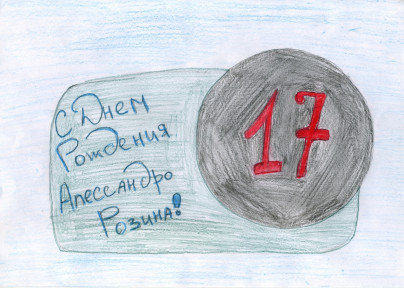 С Днем
Рождения
Алессандро
Розина!
17